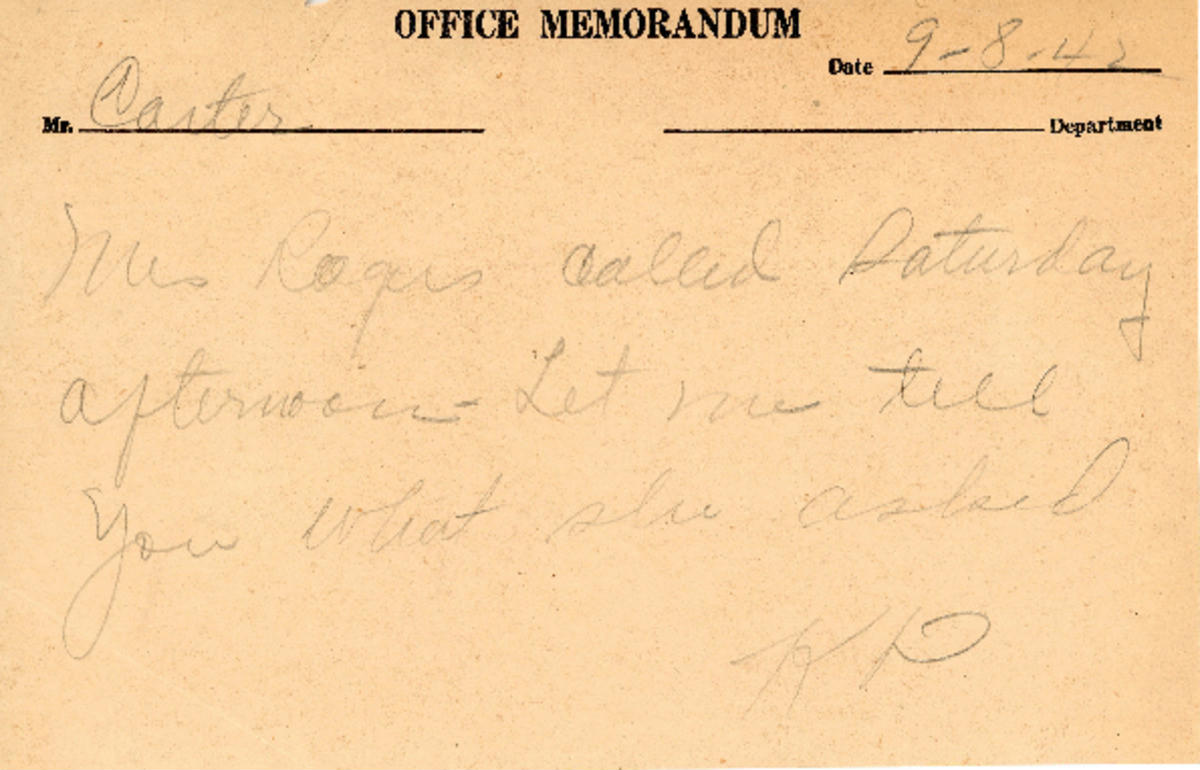 OFFICE MEMORANDUM
Date 9-8-42
Mr. Carter Department
Mrs Rogers called Saturday
afternoon - Let me tell
you what she asked
KP